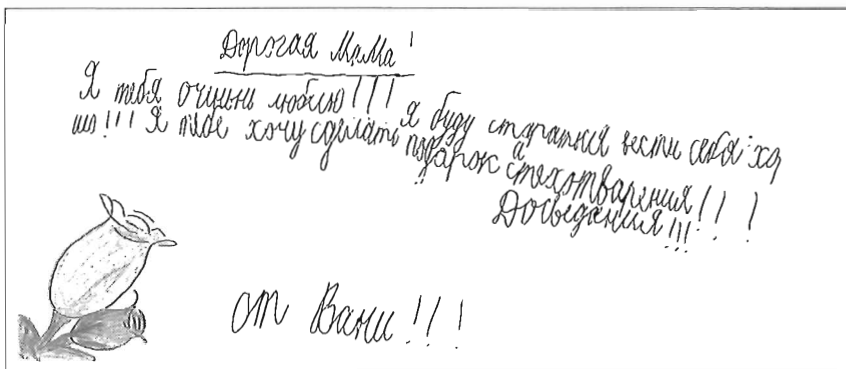 Дорогая Мама!
Я тебя очинь люблю!!! Я буду старатся вести себя хо
шо!!! Я тебе хочу сделать подарок стехотварения!!!
Досведания!!!
от Вани!!!